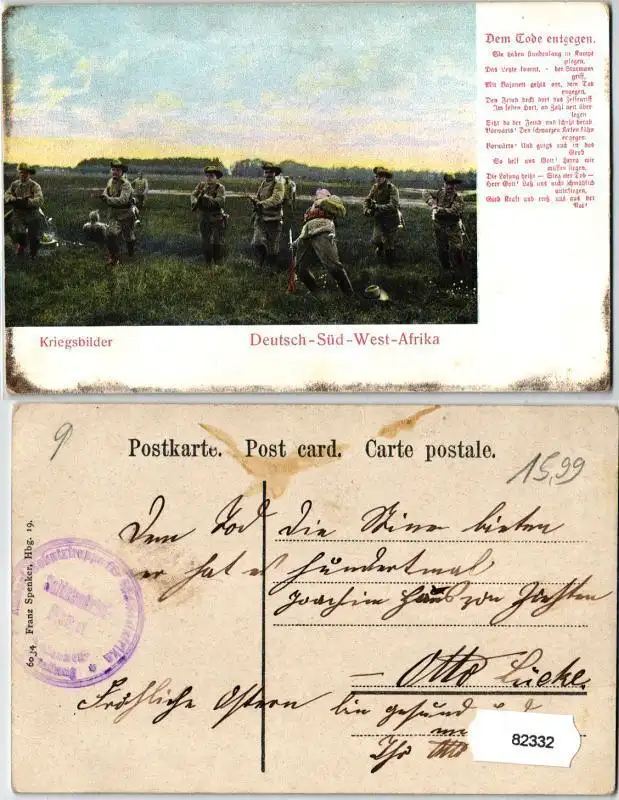 Dem Tode entgegen.
Sie haben stundenlang in Kampf
gelegen.
Das Letzte kommt, - der Sturmangriff,
Mit Bajonett gehts vor, dem Tod
entgegen.
Den Feind deckt dort das Felsenriff
Im festen Hort, an Zahl weit über
legen
Sitzt da der Feind und schießt herab
Vorwärts! Den schwarzen Kerlen kühn
entgegen.
Vorwärts! Und gings auch in das
Grab
So helf uns Gott! Hurra wir
müssen siegen.
Die Losung heißt — Sieg oder Tod —
Herr Gott! Laß uns nicht schmählich
unterliegen.
Gieb Kraft und reiß uns aus der
Not!
Kriegsbilder
Deutsch-Süd-West-Afrika
9
Postkarte. Post card. Carte postale.
15,99
6034 Franz Spenker, Hbg. 19.
Dem Tod die Stirne bieten
er hat es hundertmal
Joachim Hans von Ziethen
— Otto Lücke.
Fröhliche Ostern bin gesund
Ihr Otto
82332